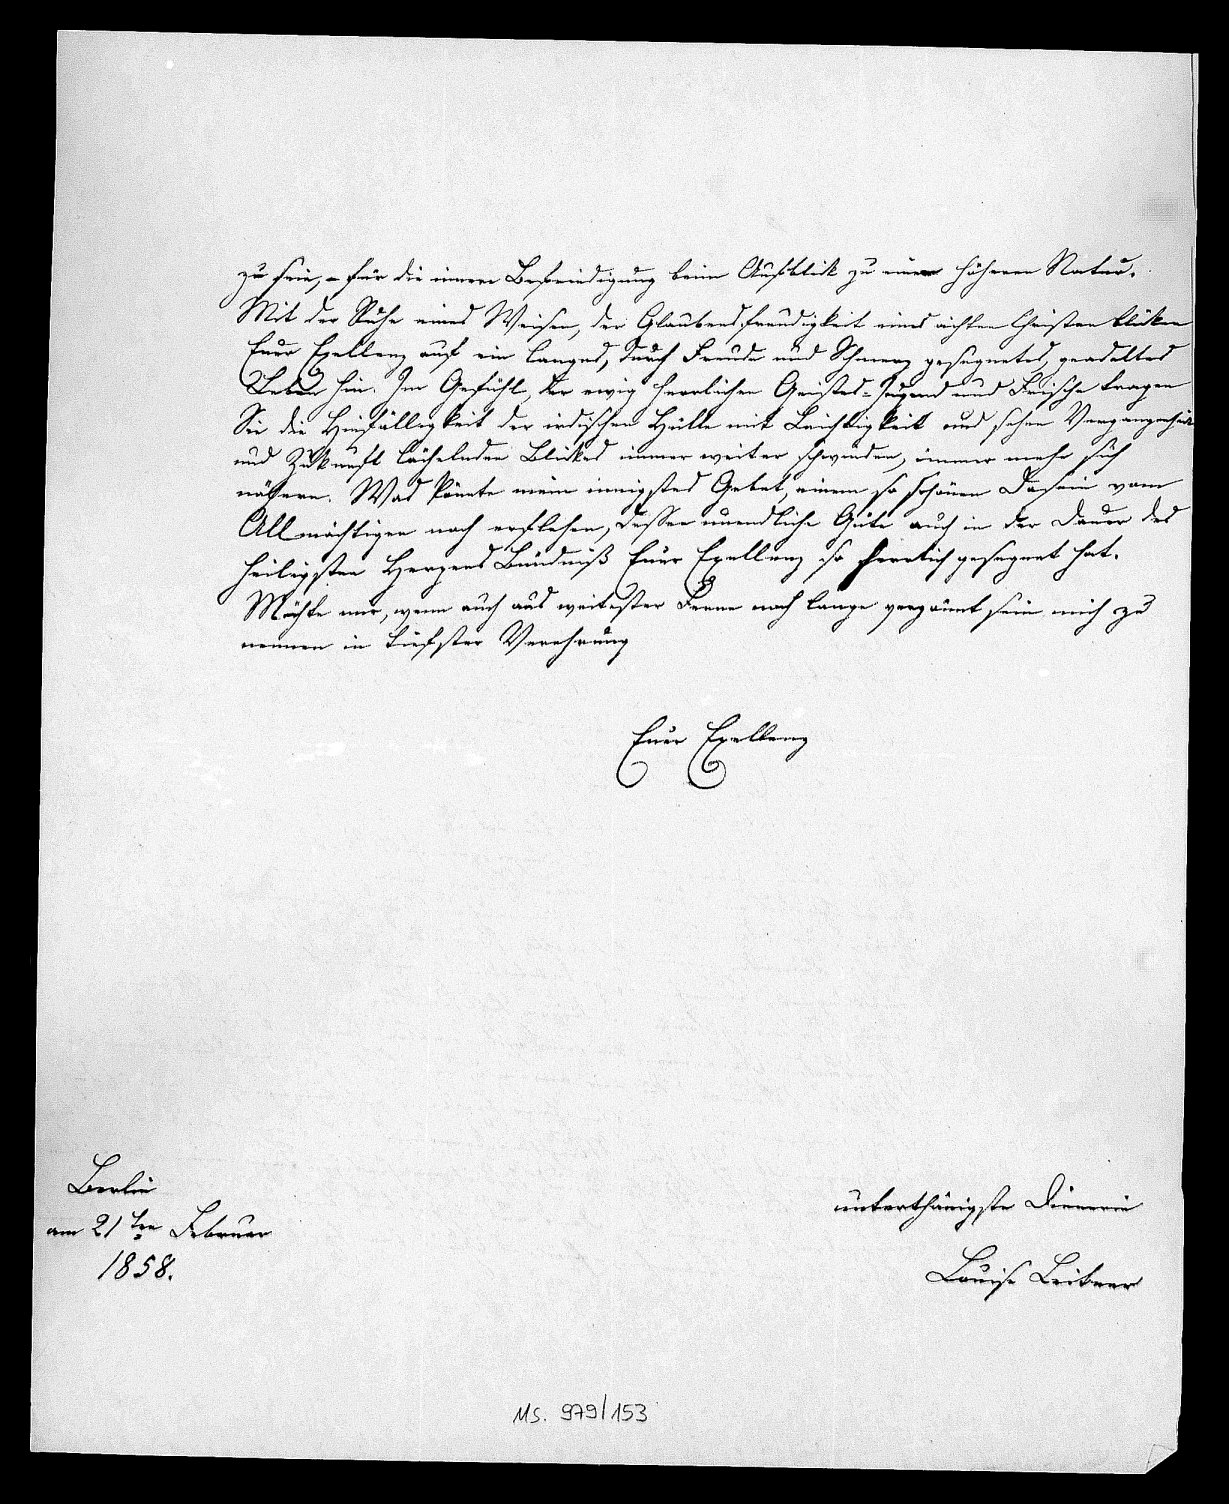 zu sein, – für die innere Befriedigung beim Aufblick zu einer höheren Natur.
Mit der Ruhe eines Weisen, der Glaubensfreudigkeit eines ächten Christen blicken
Euer Exellenz auf ein langes, durch Freude und Schmerz gesegnetes, geadeltes
Leben hin. Im Gefühl, der ewig herrlichen Geistes-Jugend und Frische tragen
Sie die Hinfälligkeit der irdischen Hülle mit Leichtigkeit und sehen Vergangenheit
und Zukunft lächelnden Blickes immer weiter schwinden, immer mehr sich
nähern. Was könnte mein innigstes Gebet, einem so schönen Dasein vom
Allmächtigen noch erflehen, dessen unendliche Güte auch in der Dauer des
heiligsten Herzens Bündniß Euer Exellenz so herrlich gesegnet hat.
Möchte mir, wenn auch aus weitester Ferne noch lange vergönnt sein mich zu
nennen in tiefster Verehrung
Euer Exellenz
Berlin
am 21ten Februar
1858.
unterthänigste Dienerin
Louise Leitner
Ms. 979/153